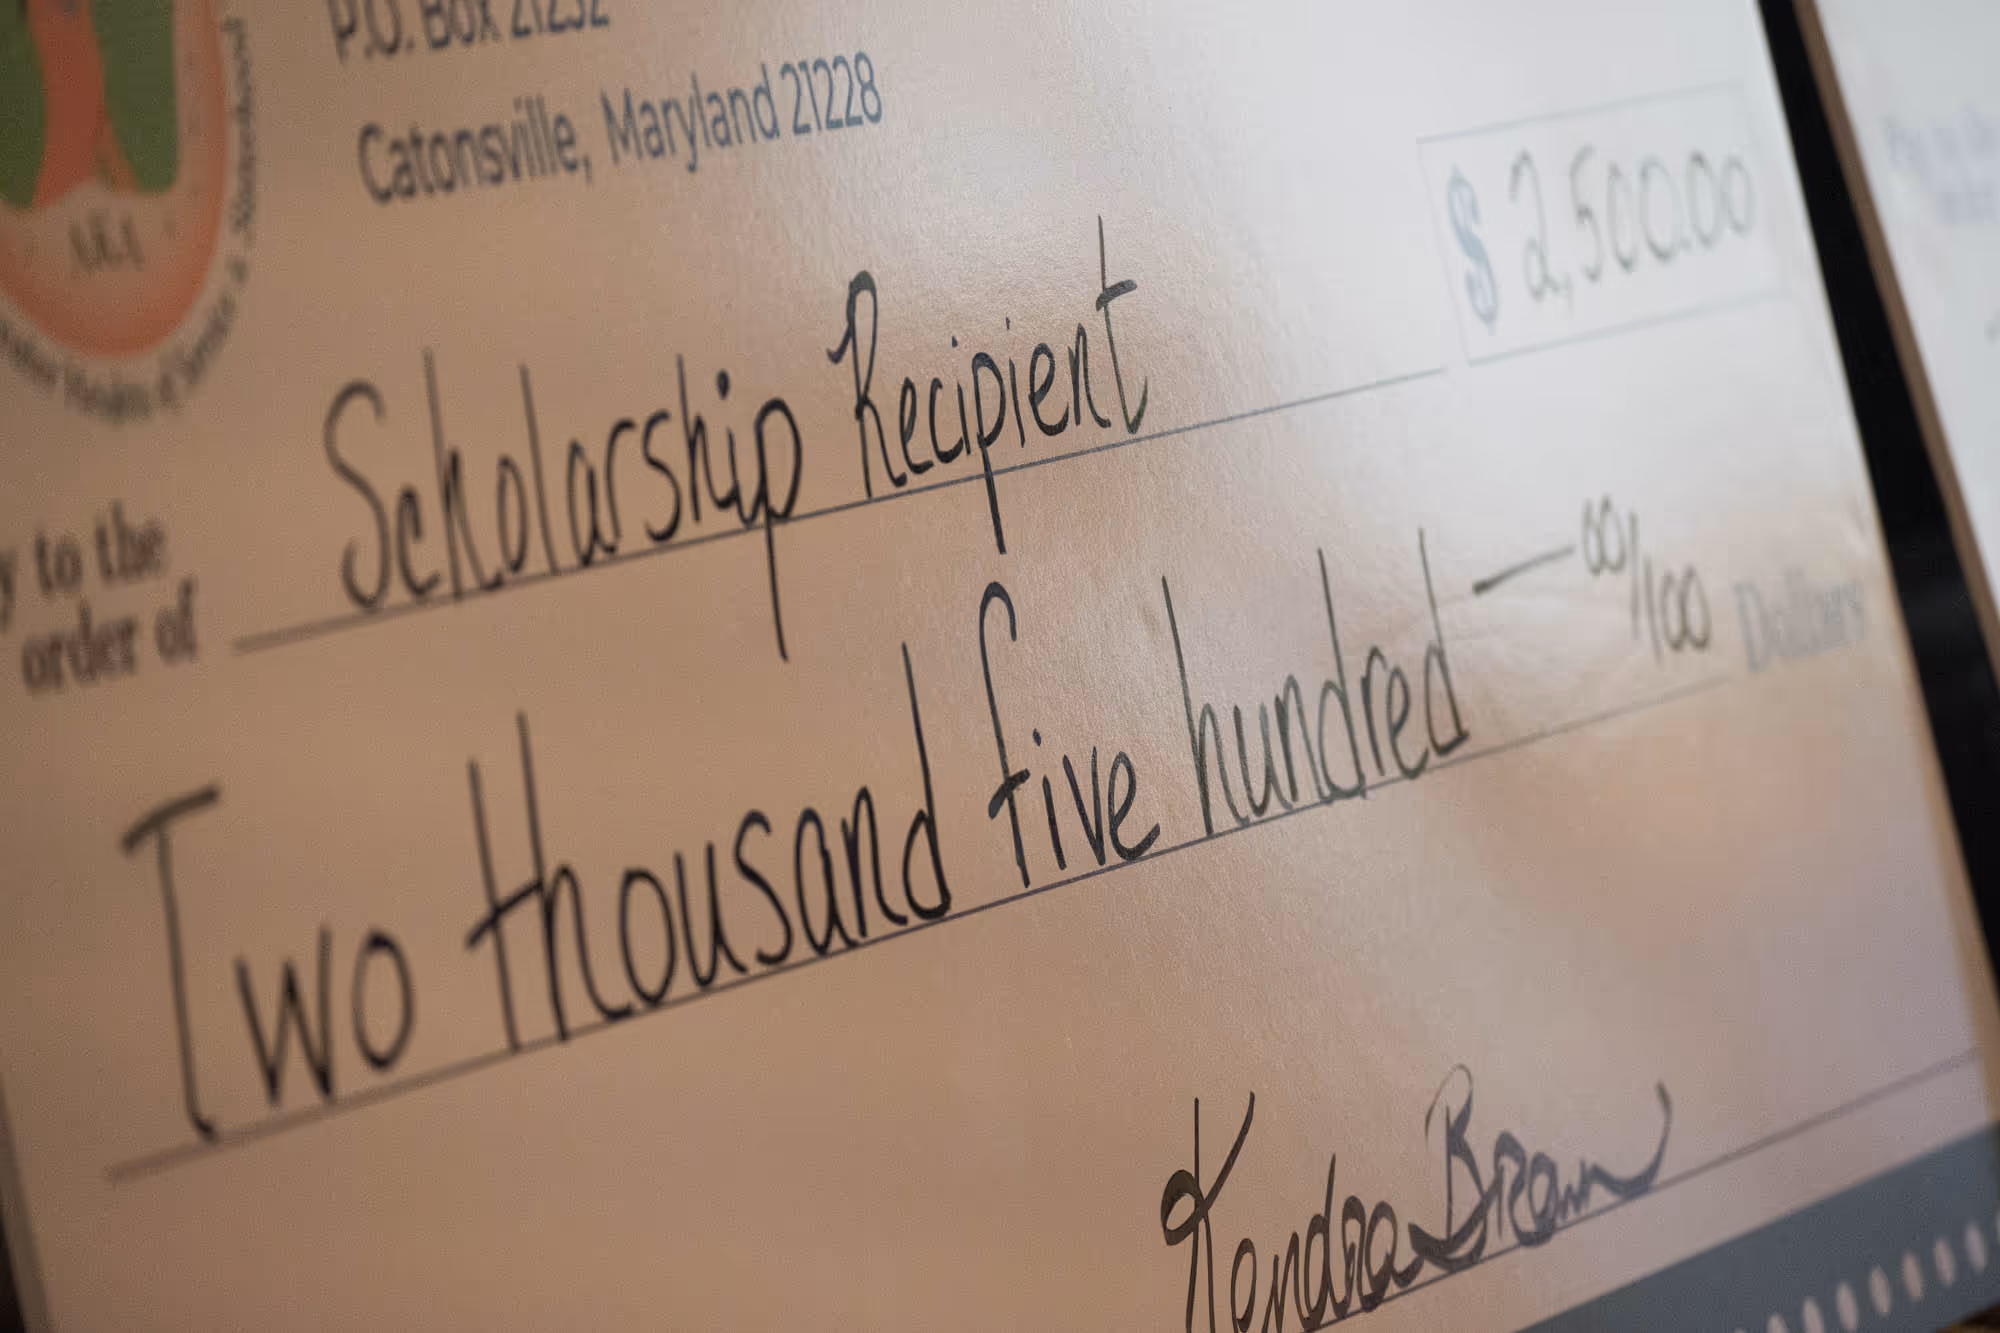 P.O. Box 21232
Catonsville, Maryland 21228
AKA
$ 2,500.00
to the
order of
Scholarship Recipient
Two thousand five hundred — 00/100 Dollars
Kendra Brown